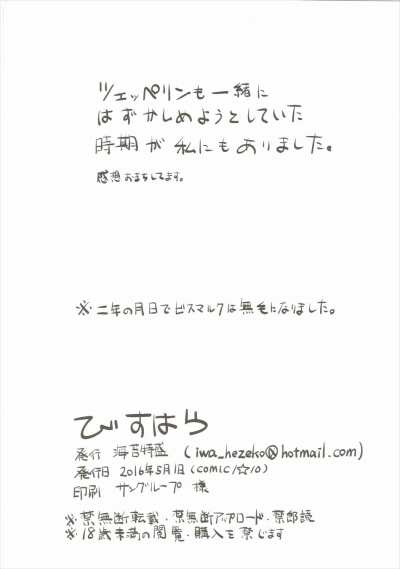 ツェッペリンも一緒に
はずかしめようとしていた
時期が私にもありました。
感想おまちしてます。
※二年の月日でビスマルクは無毛になりました。
びすはら
発行 海苔特盛 (iwa_hezeko@hotmail.com)
発行日 2016年5月1日(comic1☆10)
印刷 サングループ 様
※禁無断転載・禁無断アップロード・禁朗読
※18歳未満の閲覧・購入を禁じます